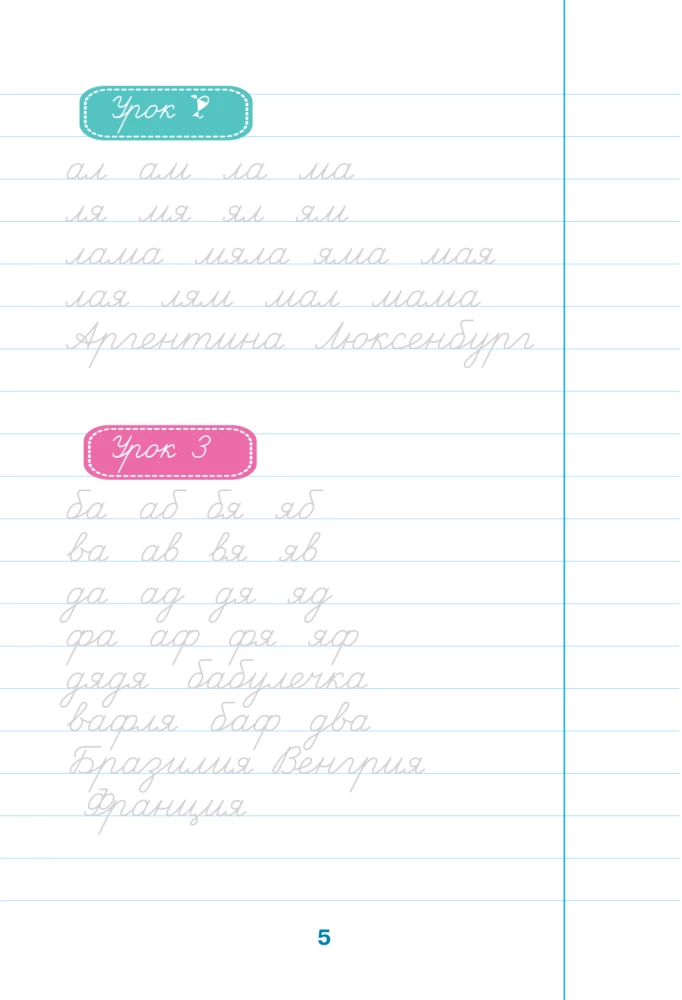 Урок 2
ал ам ла ма
ля мя ял ям
лама мяла яма мая
лая лям мал мама
Аргентина Люксенбург
Урок 3
ба аб бя яб
ва ав вя яв
да ад дя яд
фа аф фя яф
дядя бабулечка
вафля баф два
Бразилия Венгрия
Франция
5